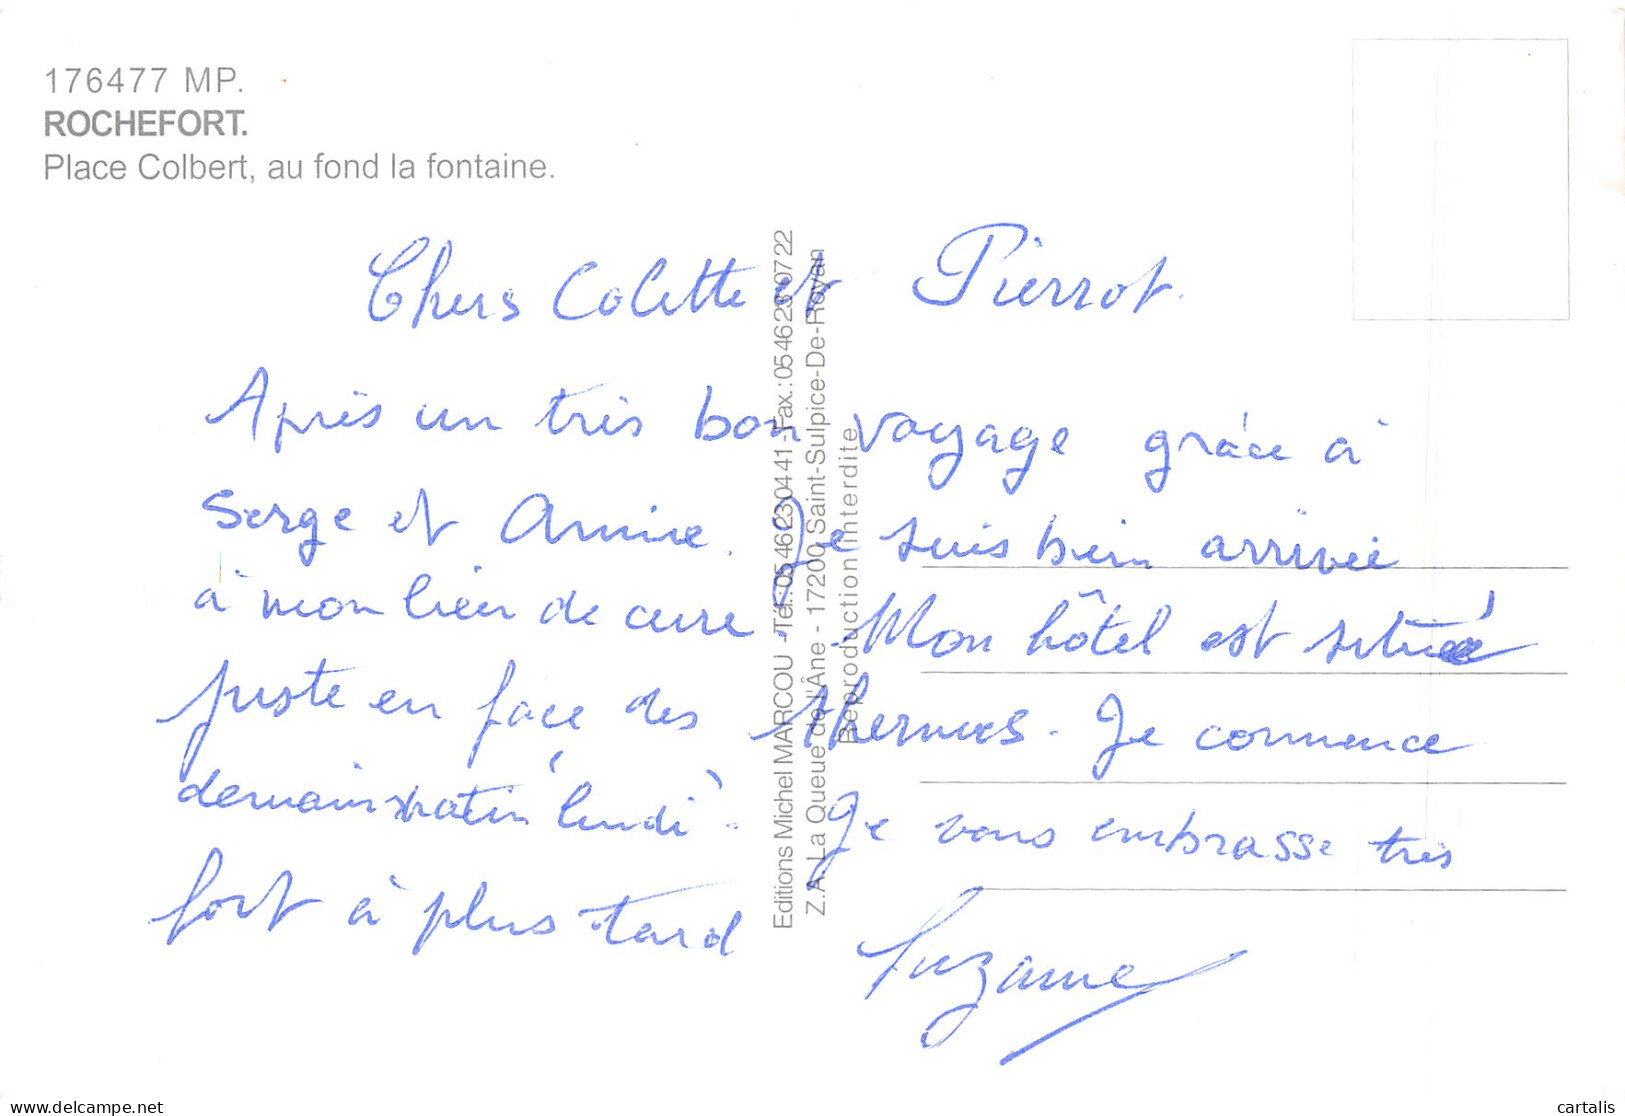 176477 MP.
ROCHEFORT.
Place Colbert, au fond la fontaine.
Chers Colette et Pierrot.
Après un très bon voyage grâce à
Serge et Annie. Je suis bien arrivée
à mon lieu de cure. Mon hôtel est situé
juste en face des thermes. Je commence
demain matin "lundi". Je vous embrasse très
fort à plus tard
Suzanne
Editions Michel MARCOU - Tél.: 0546230441 - Fax.: 0546230722
Z.A. La Queue de l'Âne - 17200 Saint-Sulpice-De-Royan
Reproduction interdite
delcampe.net
cartalis